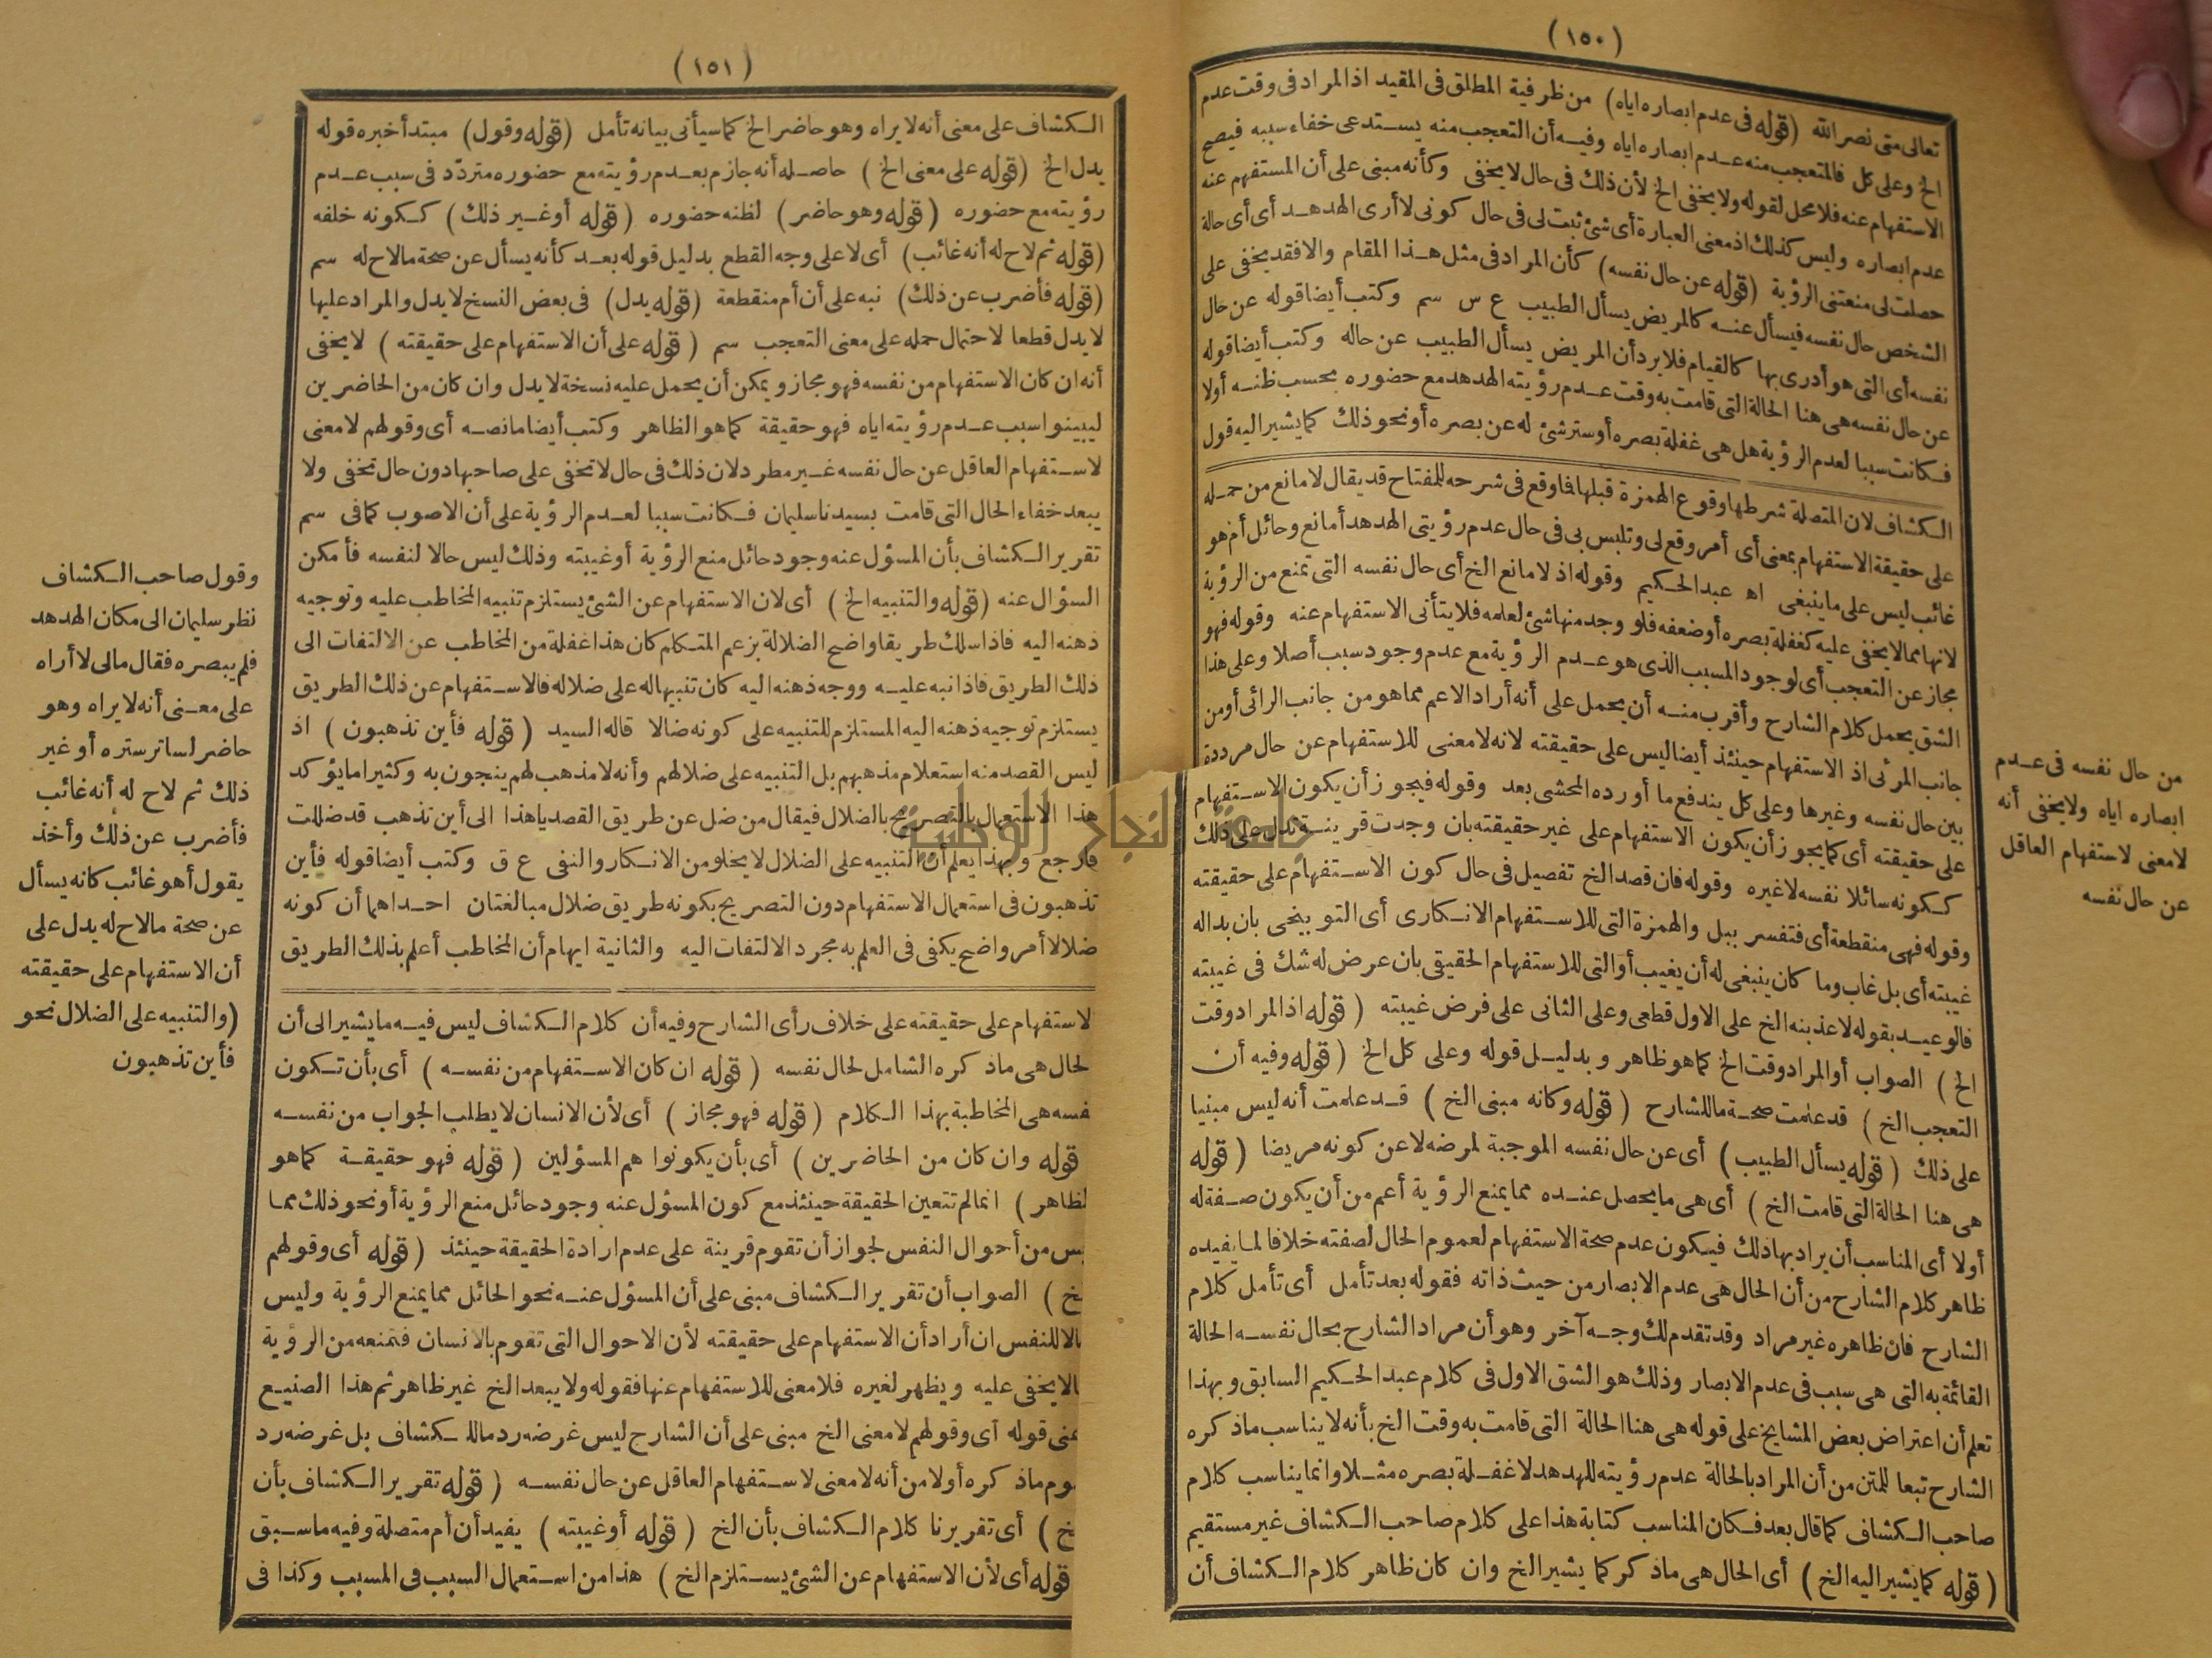 (١٥٠)
تعالى متى نصر الله (قوله فى عدم ابصاره اياه) من ظرفية المطلق فى المقيد اذ المراد فى وقت عدم
الخ وعلى كل فالمتعجب منه عدم ابصاره اياه وفيه أن التعجب منه يستدعى خفاء سببه فيصح
الاستفهام عنه فلا محل لقوله ولا يخفى الخ لأن ذلك فى حال لا يخفى وكأنه مبنى على أن المستفهم عنه
عدم ابصاره وليس كذلك اذ معنى العبارة أى شئ ثبت لى فى حال كونى لا أرى الهدهد أى أى حالة
حصلت لى منعتنى الرؤية (قوله عن حال نفسه) كأن المراد فى مثل هذا المقام والا فقد يخفى على
الشخص حال نفسه فيسأل عنه كالمريض يسأل الطبيب ع س سم وكتب أيضا قوله عن حال
نفسه أى التى هو أدرى بها كالقيام فلا يرد أن المريض يسأل الطبيب عن حاله وكتب أيضا قوله
عن حال نفسه هى هنا الحالة التى قامت به وقت عدم رؤيته الهدهد مع حضوره بحسب ظنه أولا
فكانت سببا لعدم الرؤية هل هى غفلة بصره أو ستر شئ له عن بصره أو نحو ذلك كما يشير اليه قول
الكشاف لان المتصلة شرطها وقوع الهمزة قبلها فما وقع فى شرحه للمفتاح قد يقال لا مانع من حمله
على حقيقة الاستفهام بمعنى أى أمر وقع لى وتلبس بى فى حال عدم رؤيتى الهدهد أمانع وحائل أم هو
غائب ليس على ما ينبغى اه عبد الحكيم وقوله اذ لا مانع الخ أى حال نفسه التى تمنع من الرؤية
لانها مما لا يخفى عليه كغفلة بصره أو ضعفه فلو وجد منها شئ لعلمه فلا يتأتى الاستفهام عنه وقوله فهو
مجاز عن التعجب أى لوجود المسبب الذى هو عدم الرؤية مع عدم وجود سبب أصلا وعلى هذا
الشق يحمل كلام الشارح وأقرب منه أن يحمل على أنه أراد الاعم مما هو من جانب الرائى أو من
جانب المرئى اذ الاستفهام حينئذ أيضا ليس على حقيقته لانه لا معنى للاستفهام عن حال مرددة
بين حال نفسه وغيرها وعلى كل يندفع ما أورده المحشى بعد وقوله فيجوز أن يكون الاستفهام
على حقيقته أى كما يجوز أن يكون الاستفهام على غير حقيقته بان وجدت قرينة تدل على ذلك
ككونه سائلا نفسه لا غيره وقوله فان قصد الخ تفصيل فى حال كون الاستفهام على حقيقته
وقوله فهى منقطعة أى فتفسر ببل والهمزة التى للاستفهام الانكارى أى التوبيخى بان بداله
غيبته أى بل غاب وما كان ينبغى له أن يغيب أو التى للاستفهام الحقيقى بان عرض له شك فى غيبته
فالوعيد بقوله لاعذبنه الخ على الاول قطعى وعلى الثانى على فرض غيبته (قوله اذ المراد وقت
الخ) الصواب أو المراد وقت الخ كما هو ظاهر وبدليل قوله وعلى كل الخ (قوله وفيه أن
التعجب الخ) قد علمت صحة ما للشارح (قوله وكانه مبنى الخ) قد علمت أنه ليس مبنيا
على ذلك (قوله يسأل الطبيب) أى عن حال نفسه الموجبة لمرضه لا عن كونه مريضا (قوله
هى هنا الحالة التى قامت الخ) أى هى ما يحصل عنده مما يمنع الرؤية أعم من أن يكون صفة له
أولا أى المناسب أن يراد بها ذلك فيكون عدم صحة الاستفهام لعموم الحال لصفته خلافا لما يفيده
ظاهر كلام الشارح من أن الحال هى عدم الابصار من حيث ذاته فقوله بعد تأمل أى تأمل كلام
الشارح فان ظاهره غير مراد وقد تقدم لك وجه آخر وهو أن مراد الشارح بحال نفسه الحالة
القائمة به التى هى سبب فى عدم الابصار وذلك هو الشق الاول فى كلام عبد الحكيم السابق وبهذا
تعلم أن اعتراض بعض المشايخ على قوله هى هنا الحالة التى قامت به وقت الخ بأنه لا يناسب ما ذكره
الشارح تبعا للمتن من أن المراد بالحالة عدم رؤيته للهدهد لا غفلة بصره مثلا وانما يناسب كلام
صاحب الكشاف كما قال بعد فكان المناسب كتابة هذا على كلام صاحب الكشاف غير مستقيم
(قوله كما يشير اليه الخ) أى الحال هى ما ذكر كما يشير الخ وان كان ظاهر كلام الكشاف أن
من حال نفسه فى عدم
ابصاره اياه ولا يخفى أنه
لا معنى لاستفهام العاقل
عن حال نفسه
(١٥١)
الكشاف على معنى أنه لا يراه وهو حاضر الخ كما سيأتى بيانه تأمل (قوله وقول) مبتدأ خبره قوله
يدل الخ (قوله على معنى الخ) حاصله أنه جازم بعدم رؤيته مع حضوره متردّد فى سبب عدم
رؤيته مع حضوره (قوله وهو حاضر) لظنه حضوره (قوله أو غير ذلك) ككونه خلفه
(قوله ثم لاح له أنه غائب) أى لا على وجه القطع بدليل قوله بعد كأنه يسأل عن صحة ما لاح له سم
(قوله فأضرب عن ذلك) نبه على أن أم منقطعة (قوله يدل) فى بعض النسخ لا يدل والمراد عليها
لا يدل قطعا لاحتمال حمله على معنى التعجب سم (قوله على أن الاستفهام على حقيقته) لا يخفى
أنه ان كان الاستفهام من نفسه فهو مجاز ويمكن أن يحمل عليه نسخة لا يدل وان كان من الحاضرين
ليبينوا سبب عدم رؤيته اياه فهو حقيقة كما هو الظاهر وكتب أيضا ما نصه أى وقولهم لا معنى
لاستفهام العاقل عن حال نفسه غير مطرد لان ذلك فى حال لا تخفى على صاحبها دون حال تخفى ولا
يبعد خفاء الحال التى قامت بسيدنا سليمان فكانت سببا لعدم الرؤية على أن الاصوب كما فى سم
تقرير الكشاف بأن المسؤل عنه وجود حائل منع الرؤية أو غيبته وذلك ليس حالا لنفسه فأمكن
السؤال عنه (قوله والتنبيه الخ) أى لان الاستفهام عن الشئ يستلزم تنبيه المخاطب عليه وتوجيه
ذهنه اليه فاذا سلك طريقا واضح الضلالة بزعم المتكلم كان هذا غفلة من المخاطب عن الالتفات الى
ذلك الطريق فاذا نبه عليه ووجه ذهنه اليه كان تنبيها له على ضلاله فالاستفهام عن ذلك الطريق
يستلزم توجيه ذهنه اليه المستلزم للتنبيه على كونه ضالا قاله السيد (قوله فأين تذهبون) اذ
ليس القصد منه استعلام مذهبهم بل التنبيه على ضلالهم وأنه لا مذهب لهم ينجون به وكثيرا ما يؤكد
هذا الاستعمال بالتصريح بالضلال فيقال من ضل عن طريق القصد يا هذا الى أين تذهب قد ضللت
فارجع وبهذا يعلم أن التنبيه على الضلال لا يخلو من الانكار والنفى ع ق وكتب أيضا قوله فأين
تذهبون فى استعمال الاستفهام دون التصريح بكونه طريق ضلال مبالغتان احداهما أن كونه
ضلالا أمر واضح يكفى فى العلم به مجرد الالتفات اليه والثانية ايهام أن المخاطب أعلم بذلك الطريق
لاستفهام على حقيقته على خلاف رأى الشارح وفيه أن كلام الكشاف ليس فيه ما يشير الى أن
لحال هى ما ذكره الشامل لحال نفسه (قوله ان كان الاستفهام من نفسه) أى بأن تكون
فسه هى المخاطبة بهذا الكلام (قوله فهو مجاز) أى لأن الانسان لا يطلب الجواب من نفسه
قوله وان كان من الحاضرين) أى بأن يكونوا هم المسؤلين (قوله فهو حقيقة كما هو
لظاهر) انما لم تتعين الحقيقة حينئذ مع كون المسؤل عنه وجود حائل منع الرؤية أو نحو ذلك مما
يس من أحوال النفس لجواز أن تقوم قرينة على عدم ارادة الحقيقة حينئذ (قوله أى وقولهم
لخ) الصواب أن تقرير الكشاف مبنى على أن المسؤل عنه نحو الحائل مما يمنع الرؤية وليس
الا للنفس ان أراد أن الاستفهام على حقيقته لأن الاحوال التى تقوم بالانسان فتمنعه من الرؤية
الا يخفى عليه ويظهر لغيره فلا معنى للاستفهام عنها فقوله ولا يبعد الخ غير ظاهر ثم هذا الصنيع
عنى قوله أى وقولهم لا معنى الخ مبنى على أن الشارح ليس غرضه رد ما للكشاف بل غرضه رد
وم ما ذكره أولا من أنه لا معنى لاستفهام العاقل عن حال نفسه (قوله تقرير الكشاف بأن
لخ) أى تقريرنا كلام الكشاف بأن الخ (قوله أو غيبته) يفيد أن أم متصلة وفيه ما سبق
قوله أى لأن الاستفهام عن الشئ يستلزم الخ) هذا من استعمال السبب فى المسبب وكذا فى
وقول صاحب الكشاف
نظر سليمان الى مكان الهدهد
فلم يبصره فقال مالى لا أراه
على معنى أنه لا يراه وهو
حاضر لساتر ستره أو غير
ذلك ثم لاح له أنه غائب
فأضرب عن ذلك وأخذ
يقول أهو غائب كانه يسأل
عن صحة ما لاح له يدل على
أن الاستفهام على حقيقته
(والتنبيه على الضلال نحو
فأين تذهبون
جامعة النجاح الوطنية